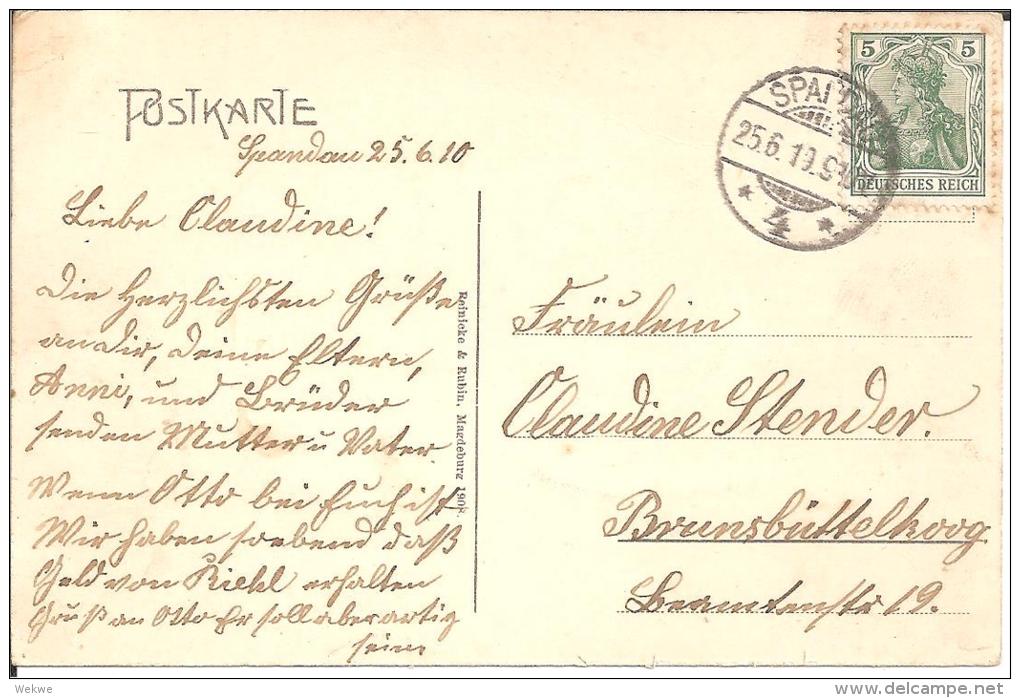 POSTKARTE
Spandau 25.6.10
Liebe Claudine!
Die Herzlichsten Grüße
an dir, deine Eltern,
Anni, und Brüder
senden Mutter u Vater.
Wenn Otto bei Euch ist
Wir haben soebend daß
Geld von Riehl erhalten
Gruß an Otto Er soll aber artig
sein
Reinicke & Rubin, Magdeburg 1908.
5 5
DEUTSCHES REICH
25.6.10.
* 4 *
Fräulein
Claudine Stender.
Brunsbüttelkoog
Beamtenstr 19.
Wekwe
www.delcampe.net